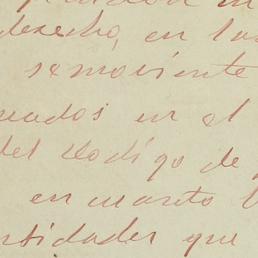 derecho, en las
semoviente
uados en el
del Codigo de
en cuanto l
ntidades que